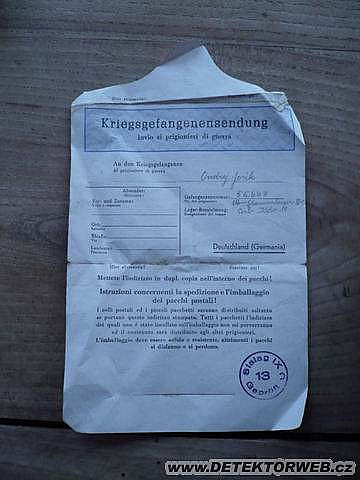 Kriegsgefangenensendung
Invio ai prigionieri di guerra
An den Kriegsgefangenen
Al prigioniero di guerra
Absender:
Vor- und Zuname:
Ort:
Straße:
Gefangenennummer:
Lager-Bezeichnung:
Deutschland (Germania)
Mettete l'indirizzo in dupl. copia nell'interno dei pacchi!
Istruzioni concernenti la spedizione e l'imballaggio
dei pacchi postali!
I colli postali ed i piccoli pacchetti saranno distribuiti soltanto
se portano questo indirizzo stampato. Tutti i pacchetti l'indirizzo
dei quali non è stato incollato sull'imballaggio non mi perverranno
ed il contenuto sarà distribuito agli altri prigionieri.
L'imballaggio deve essere solido e resistente, altrimenti i pacchi
si disfanno e si perdono.
Stalag IX C
13
Geprüft
www.DETEKTORWEB.cz